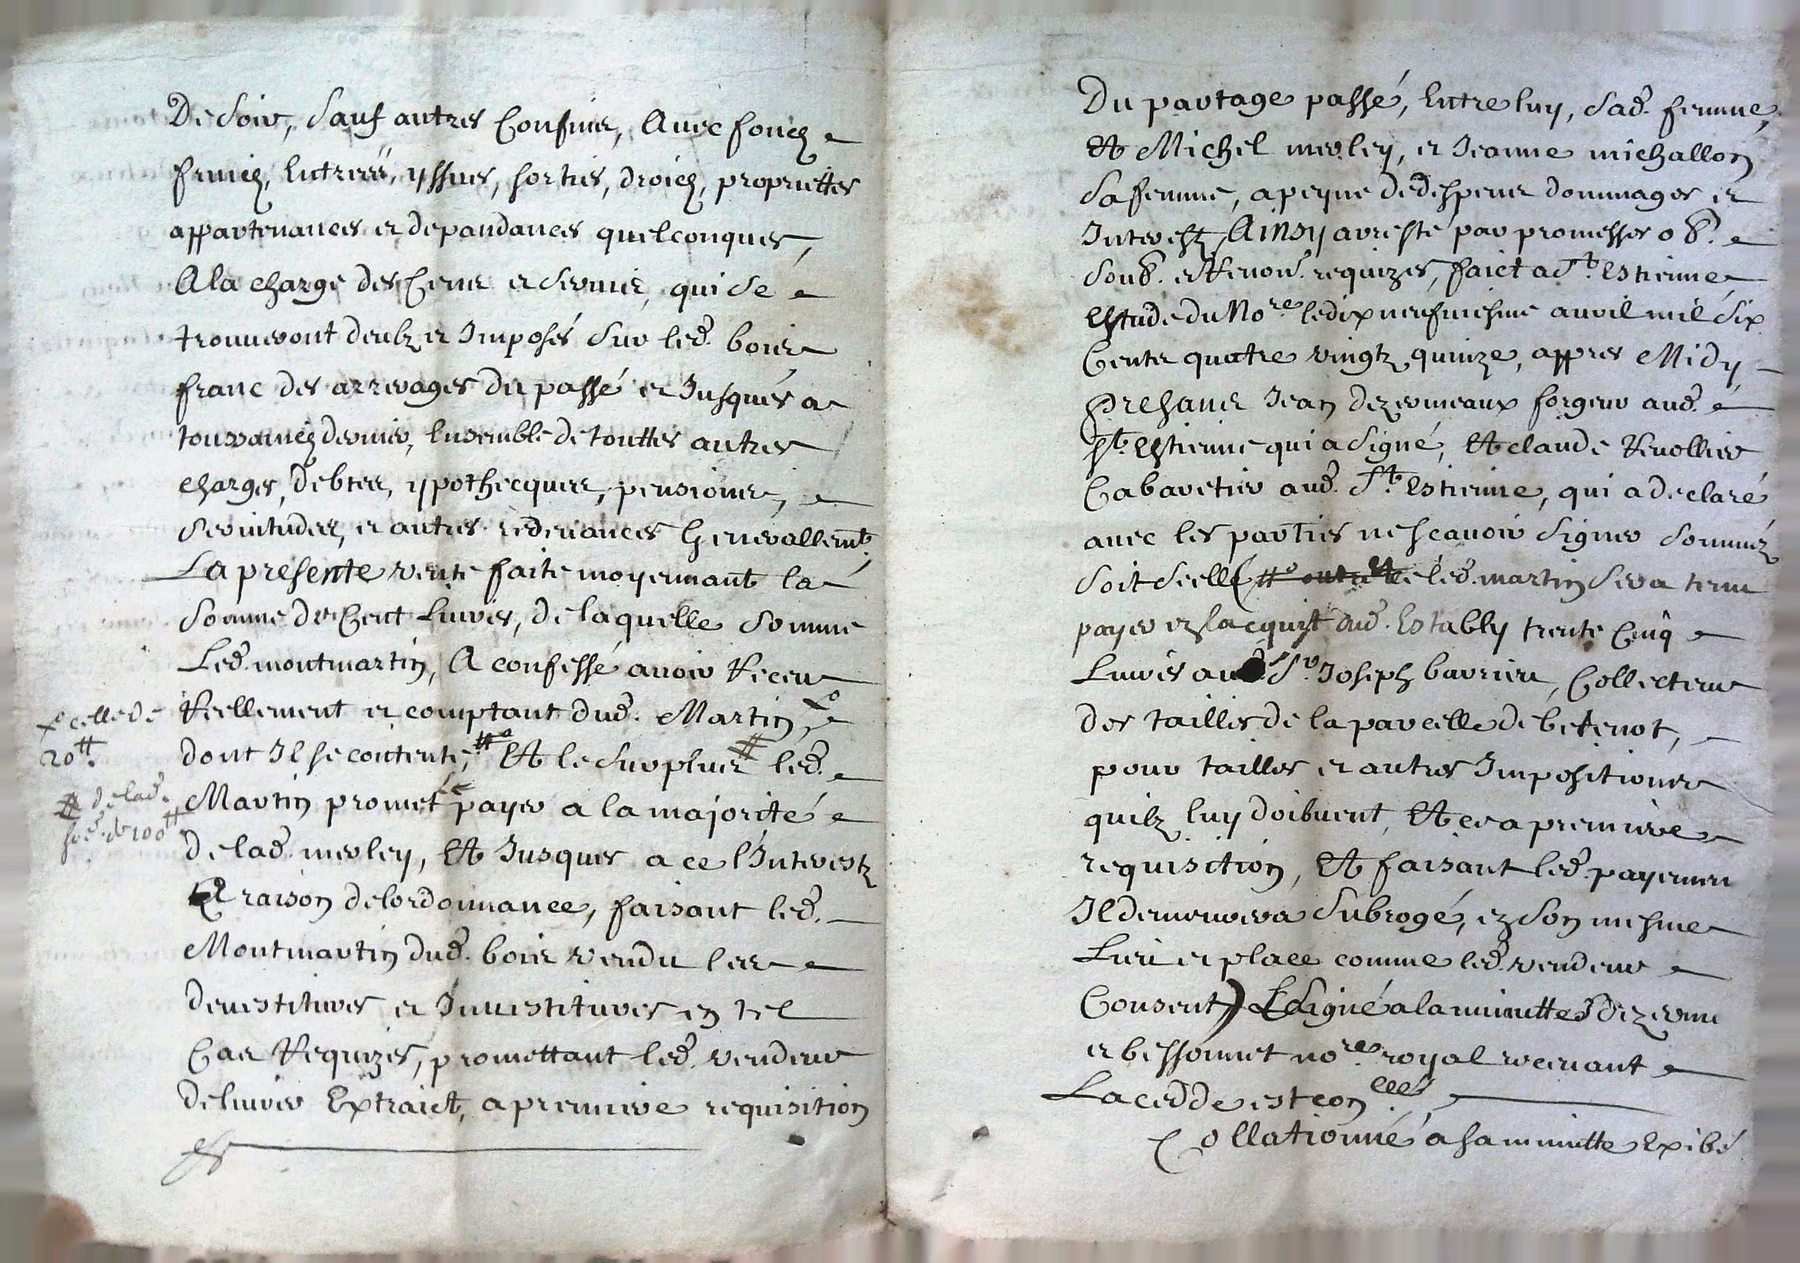 De soir, sauf autres Confins, Avec fondz
fruictz, Entrées, yssues, sorties, droictz, propriettes
appartenances et depandances quelconques,
A la charge des Cens et servis, qui se
trouveront deubz et Imposés sur led. bois
franc des arrerages du passé et Jusques a
toussainctz dernier, Ensemble de touttes autres
charges, debtes, ypothecques, pensions,
servitudes, et autres redevances Generallemt.
La presente vente faite moyennant la
somme de Cent Livres, de laquelle somme
Led. montmartin, A confessé avoir Receu
Reellement et comptant dud. Martin
x celle de
20tt.
dont Il se contente, Et le surplus # led.
# de lad.
soe. de 100tt
Martin promet payer a la majorité
de lad. merley, Et Jusques a ce l'Interestz
A raison de lordonnance, faisant led.
Montmartin dud. bois vendu les
devestitures et Investitures en tel
Cas Requizes, promettant led. vendeur
delivrer Extraict, a premiere requisition
Du partage passé, Entre luy, sad. femme,
Et Michel merley, et Jeanne michallon
sa femme, a peyne de despens dommages et
Interestz, Ainsy arresté par promesses ob.
soub. et Renon. requizes, faict a St. Estienne
Estude du Nore. le dix neufviesme avril mil six
Cents quatre vingtz quinze, appres Midy,
Presans Jean dezermeaux forgeur aud.
St. Estienne qui a signé, Et claude Revollier
Cabaretier aud. St. Estienne, qui a declaré
avec les parties ne scavoir signer sommez
soit scellé ( led. martin sera tenu
payer ez lacquist dud. Estably trente Cinq
Livres au Sr. Joseph barrieu, Collecteur
des tailles de la parcelle de betenot,
pour tailles et autres Impositions
quilz luy doibvent, Et ce a premiere
requisition, Et faisant led. payement
Il demeurera subrogé, ez son mesme
Lieu et place comme led. vendeur
Consent) Signé a la minutte Dezerm
et bessonnet nore. royal recevant
La cedde est con.elleé
Collationné a sa minutte Exibé